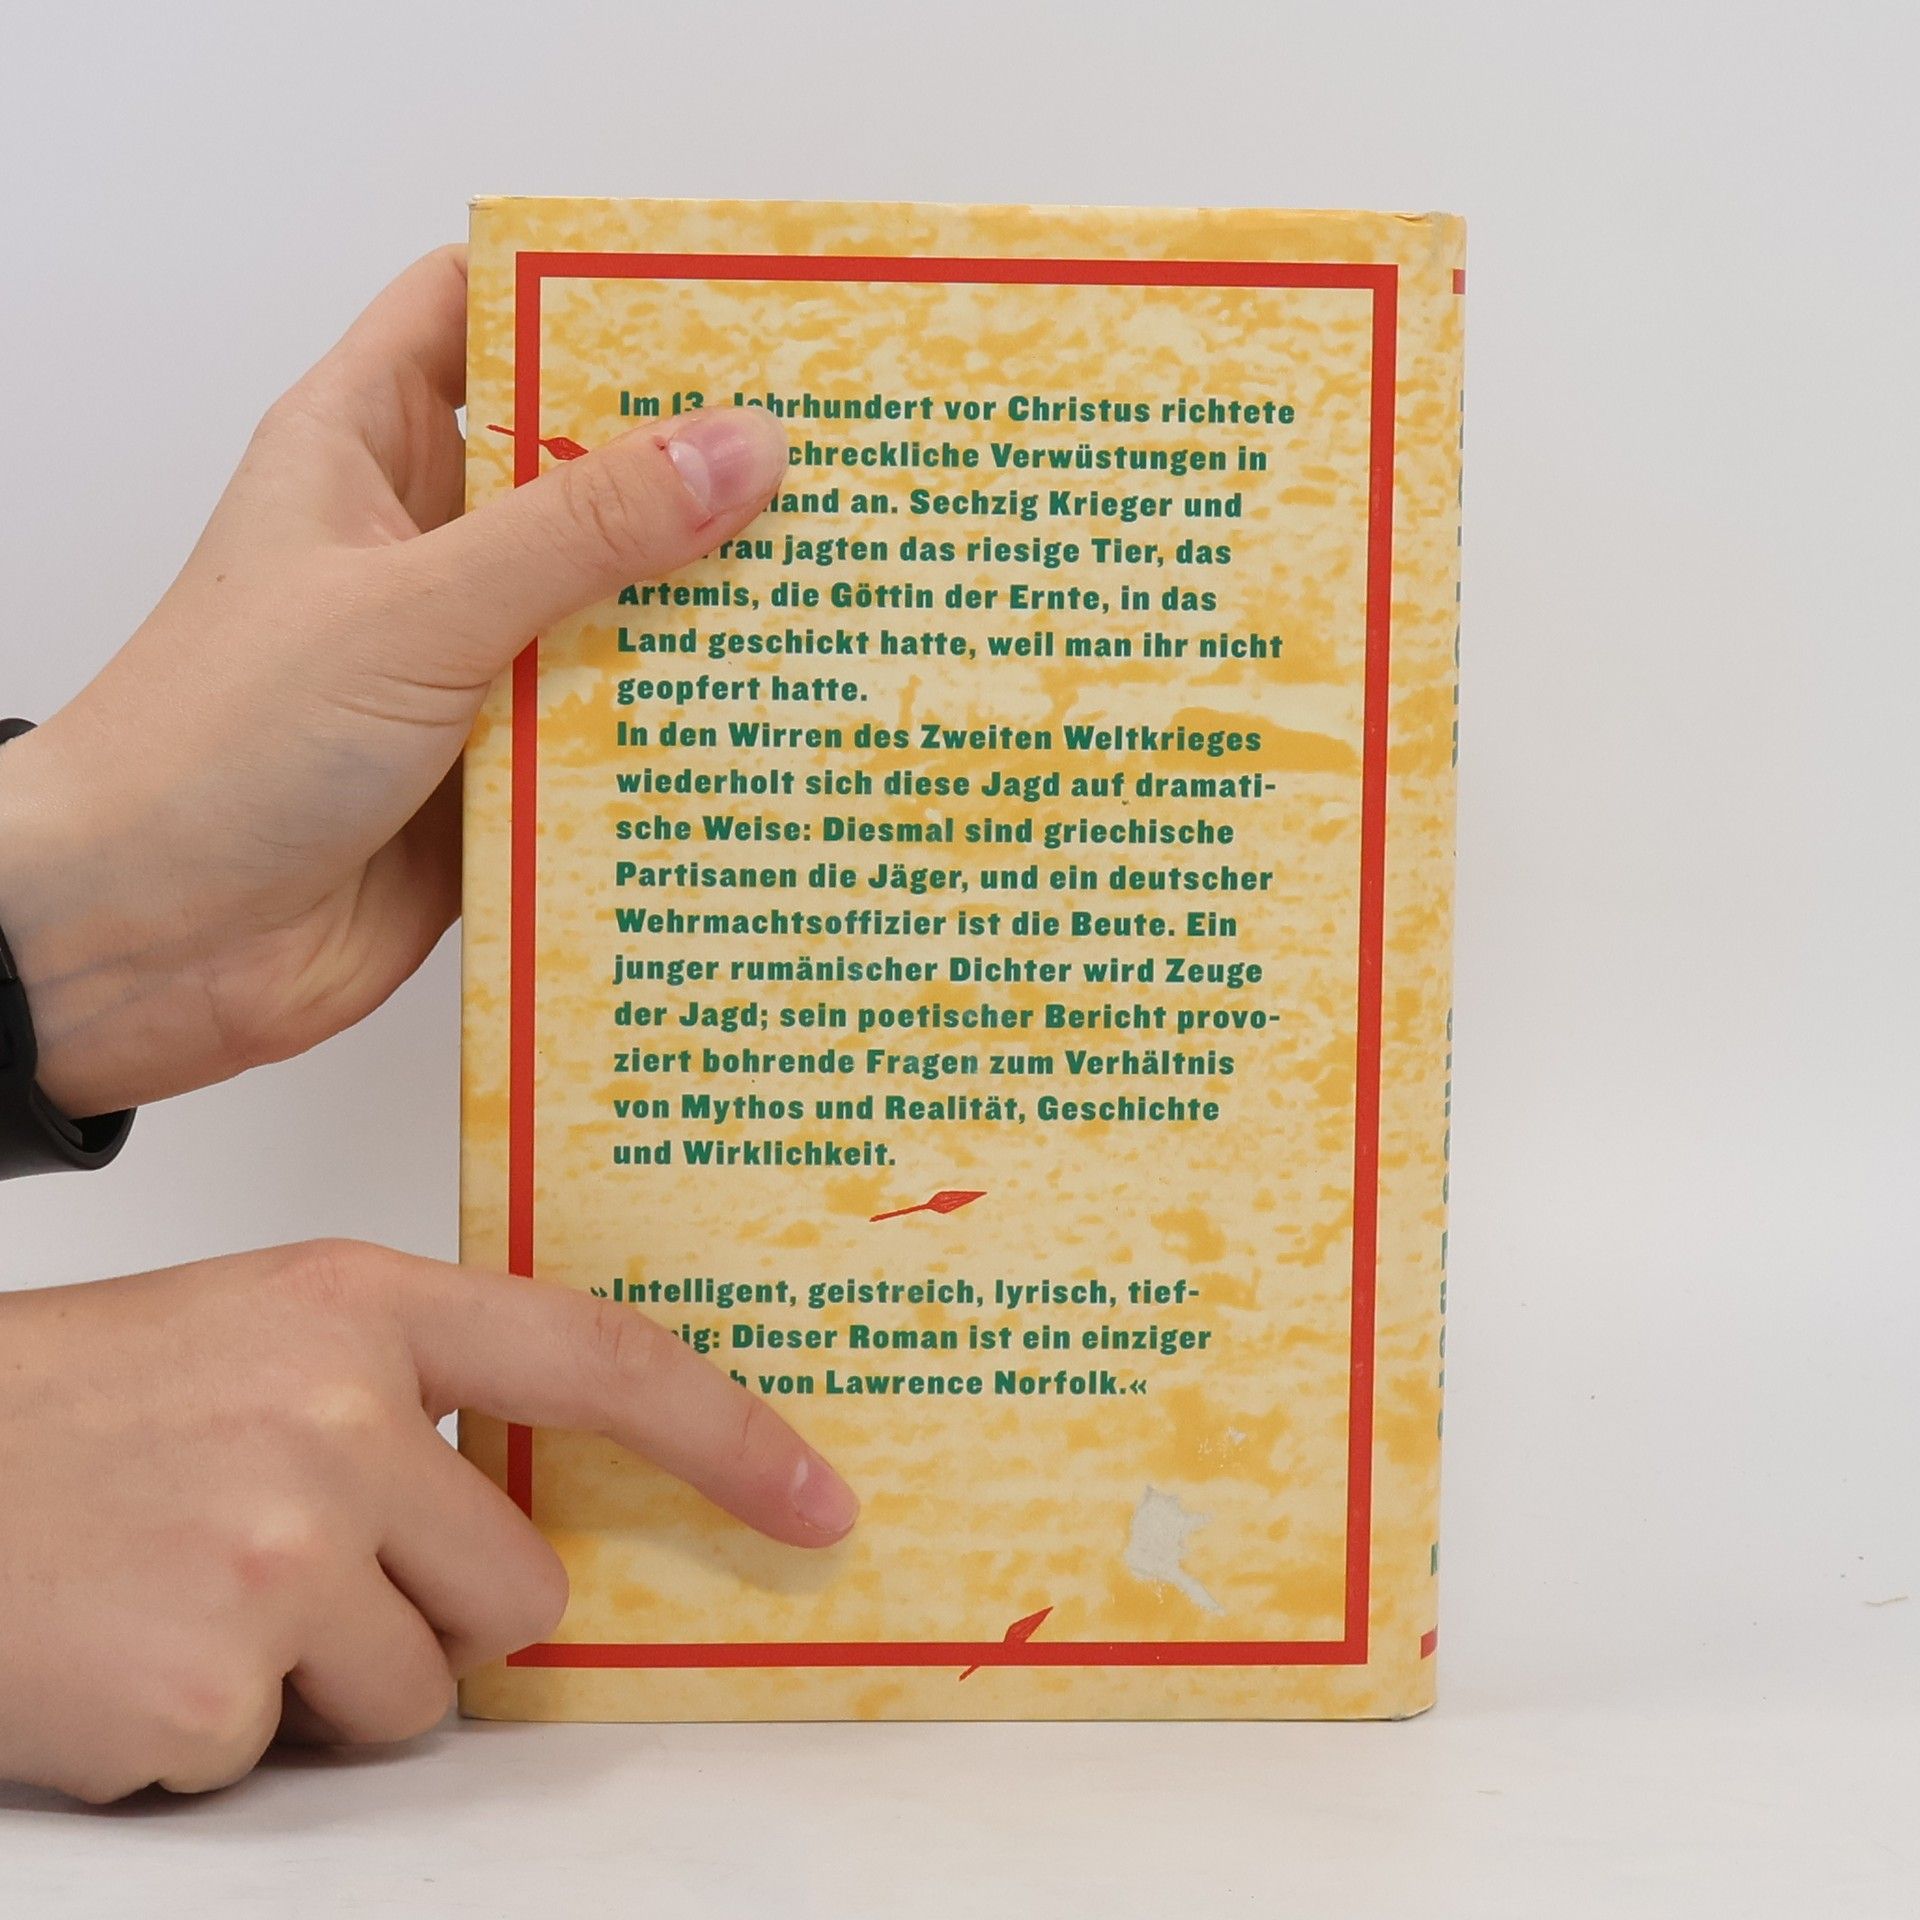 Im 13. Jahrhundert vor Christus richtete
Verwüstungen in
an. Sechzig Krieger und
jagten das riesige Tier, das
Artemis, die Göttin der Ernte, in das
Land geschickt hatte, weil man ihr nicht
geopfert hatte.
In den Wirren des Zweiten Weltkrieges
wiederholt sich diese Jagd auf dramati-
sche Weise: Diesmal sind griechische
Partisanen die Jäger, und ein deutscher
Wehrmachtsoffizier ist die Beute. Ein
junger rumänischer Dichter wird Zeuge
der Jagd; sein poetischer Bericht provo-
ziert bohrende Fragen zum Verhältnis
von Mythos und Realität, Geschichte
und Wirklichkeit.
»Intelligent, geistreich, lyrisch, tief-
Dieser Roman ist ein einziger
von Lawrence Norfolk.«